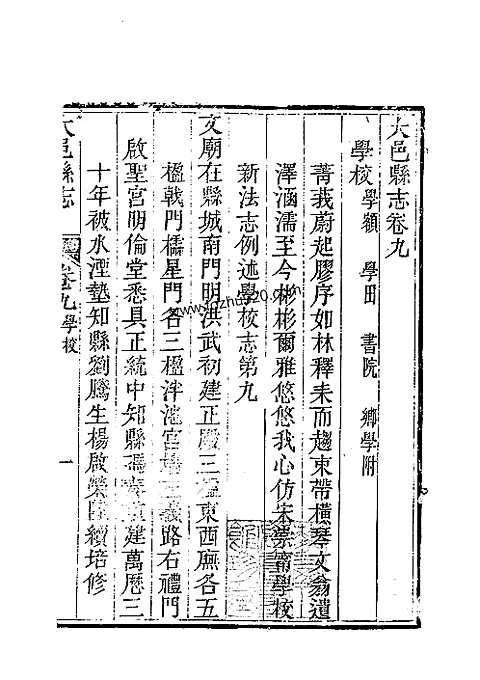 大邑縣志卷九
學校 學額 學田 書院 鄉學附
菁莪蔚起膠序如林釋耒而趨束帶橫琴文翁遺
澤涵濡至今彬彬爾雅悠悠我心仿宋崇甯學校
新法志例述學校志第九
文廟在縣城南門明洪武初建正殿三楹東西廡各五
楹戟門櫺星門各三楹泮池宮墻左義路右禮門
啟聖宮明倫堂悉具正統中知縣馮 建萬歷三
十年被水湮墊知縣劉騰生楊啟榮 續培修
大邑縣志 卷九 學校 一